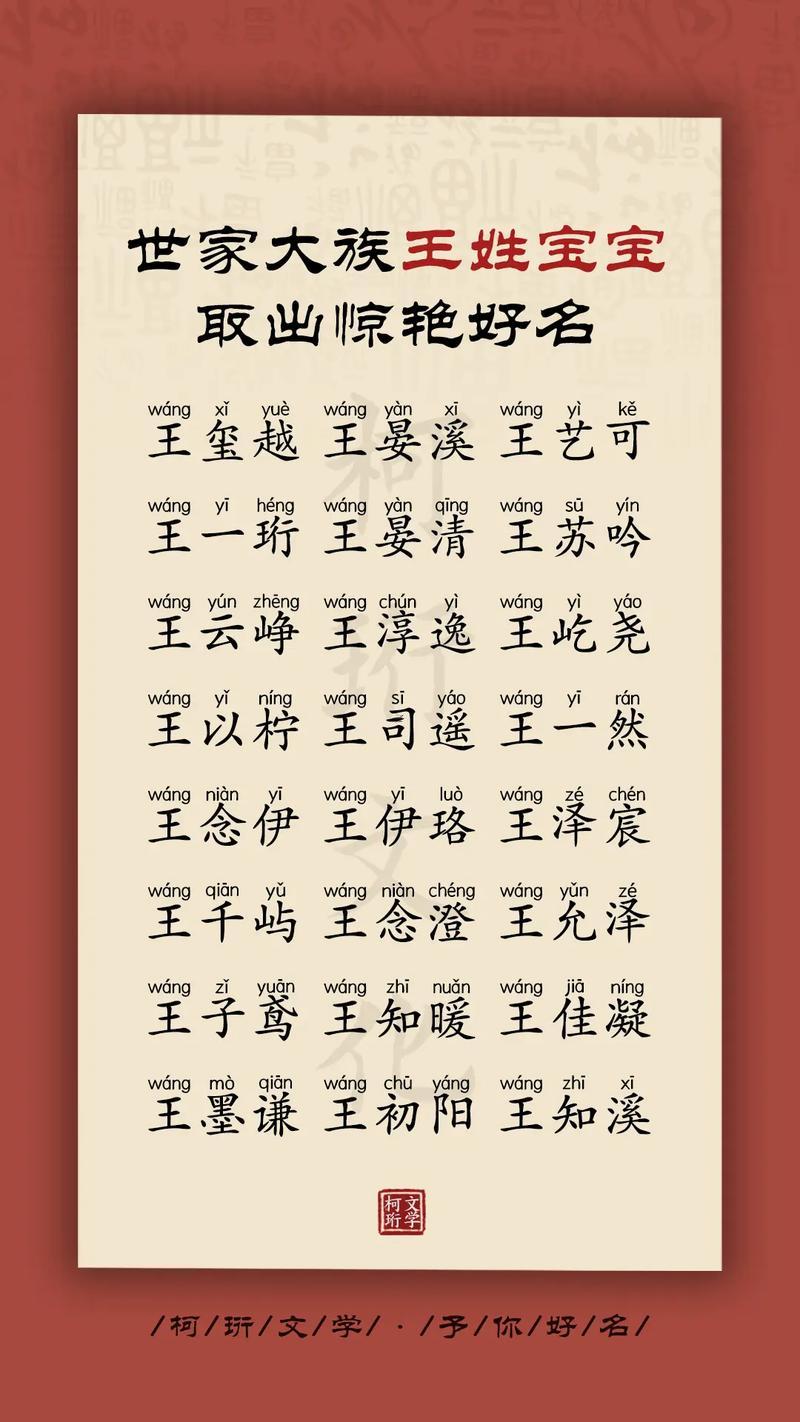 世家大族王姓宝宝
取出惊艳好名
wáng xǐ yuè wáng yàn xī wáng yì kě
王玺越 王晏溪 王艺可
wáng yī héng wáng yàn qīng wáng sū yín
王一珩 王晏清 王苏吟
wáng yún zhēng wáng chún yì wáng yì yáo
王云峥 王淳逸 王屹尧
wáng yǐ níng wáng sī yáo wáng yī rán
王以柠 王司遥 王一然
wáng niàn yī wáng yī luò wáng zé chén
王念伊 王伊珞 王泽宸
wáng qiān yǔ wáng niàn chéng wáng yǔn zé
王千屿 王念澄 王允泽
wáng zǐ yuān wáng zhī nuǎn wáng jiā níng
王子鸢 王知暖 王佳凝
wáng mò qiān wáng chū yáng wáng zhī xī
王墨谦 王初阳 王知溪
柯珩文化
柯珩文学
/柯/珩/文/学/·/予/你/好/名/